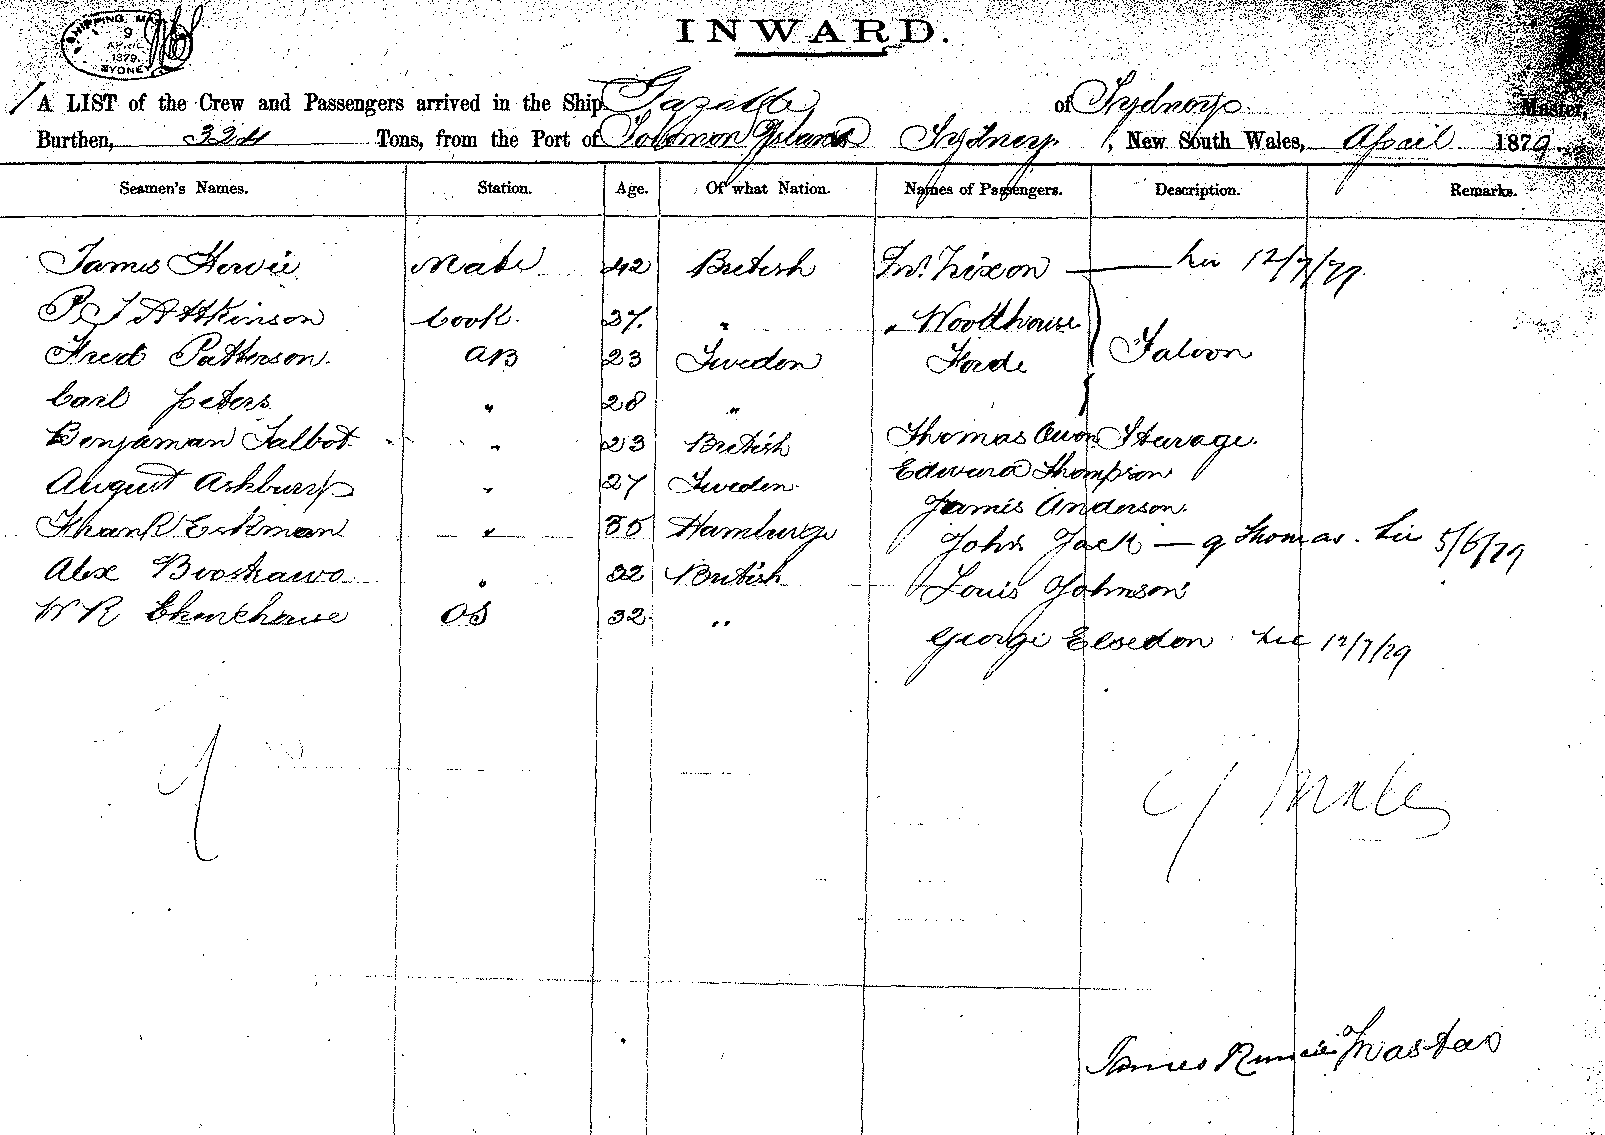 SHIPPING MA
9
APRIL
1879
SYDNEY
INWARD.
A LIST of the Crew and Passengers arrived in the Ship Gazelle of Sydney Master,
Burthen, 324 Tons, from the Port of Solomon Islands Sydney, New South Wales, April 1879
Seamen's Names. Station. Age. Of what Nation. Names of Passengers. Description. Remarks.
James Howie Mate 42 British Mr. Nixon — 12/7/79
P J Attkinson Cook 37 " " Woodhouse
Fred Patterson AB 23 Sweden Forde Saloon
Carl Peters " 28 "
Benjaman Talbot " 23 British Thomas Owen Steerage.
August Ashbury " 27 Sweden Edward Thompson
James Anderson.
Frank Eckman " 35 Hamburg John Jack — Thomas. 5/6/79
Alex " 32 British Louis Johnson
W R OS 32 "
George Elsedon 12/7/79
9
9 Males
James Runcie Master